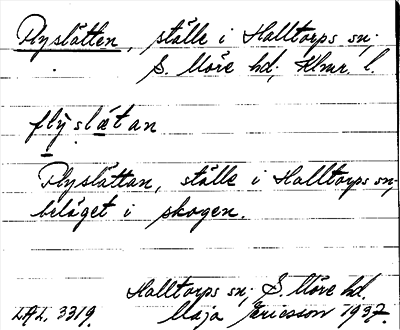 Plyslätten, ställe i Halltorps sn;
S. Möre hd, Khnr. l.
flỳslætan
Plyslättan, ställe i Halltorps sn,
beläget i skogen.
Halltorps sn; S. Möre hd.
LAL. 3319. Maja Ericsson 1937.